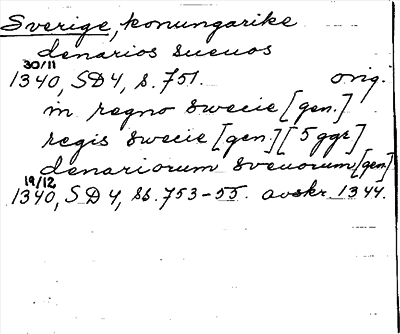 Sverige, konungarike
denarios sueuos
30/11
1340, SD4, s. 751. orig.
in regno Swecie [gen.]
regis Swecie [gen.] [5 ggr]
denariorum Sveuorum [gen.]
19/12
1340, SD4, ss. 753-55. avskr. 1344.